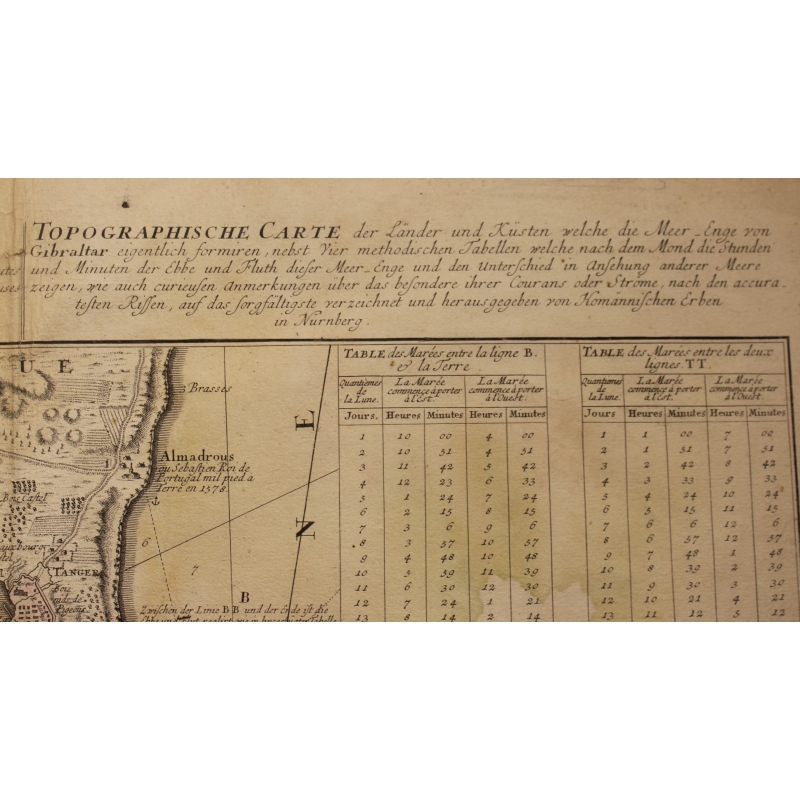 TOPOGRAPHISCHE CARTE der Länder und Küsten welche die Meer-Enge von
Gibraltar eigentlich formiren, nebst Vier methodischen Tabellen welche nach dem Mond die Stunden
und Minuten der Ebbe und Fluth dieser Meer-Enge und den Unterschied in Ansehung anderer Meere
zeigen, wie auch curieusen Anmerkungen über das besondere ihrer Courans oder Ströme, nach den accura-
testen Rissen, auf das sorgfältigste verzeichnet und herausgegeben von Homännischen Erben
in Nurnberg.
UE
Brasses
Almadrous
ou Sebastien Roi de
Portugal mit pied a
Terre en 1578.
TANGER
6
7
B
Zwischen der Linie BB und der Erde ist die
N E
TABLE des Marées entre la ligne B.
& la Terre
Quantiemes de la Lune. La Marée commence à porter à l'Est. La Marée commence à porter à l'Ouest.
Jours. Heures Minutes Heures Minutes
1 10 00 4 00
2 10 51 4 51
3 11 42 5 42
4 12 23 6 33
5 1 24 7 24
6 2 15 8 15
7 3 6 9 6
8 3 57 9 57
9 4 48 10 48
10 5 39 11 39
11 6 30 12 30
12 7 24 1 21
13 8 14 2 14
TABLE des Marées entre les deux
lignes. TT.
Quantiemes de la Lune. La Marée commence à porter à l'Est. La Marée commence à porter à l'Ouest.
Jours Heures Minutes Heures Minutes
1 1 00 7 00
2 1 51 7 51
3 2 42 8 42
4 3 33 9 33
5 4 24 10 24
6 5 15 11 15
7 6 6 12 6
8 6 57 12 57
9 7 48 1 48
10 8 39 2 39
11 9 30 3 30
12 10 21 4 21
13 11 12 5 12